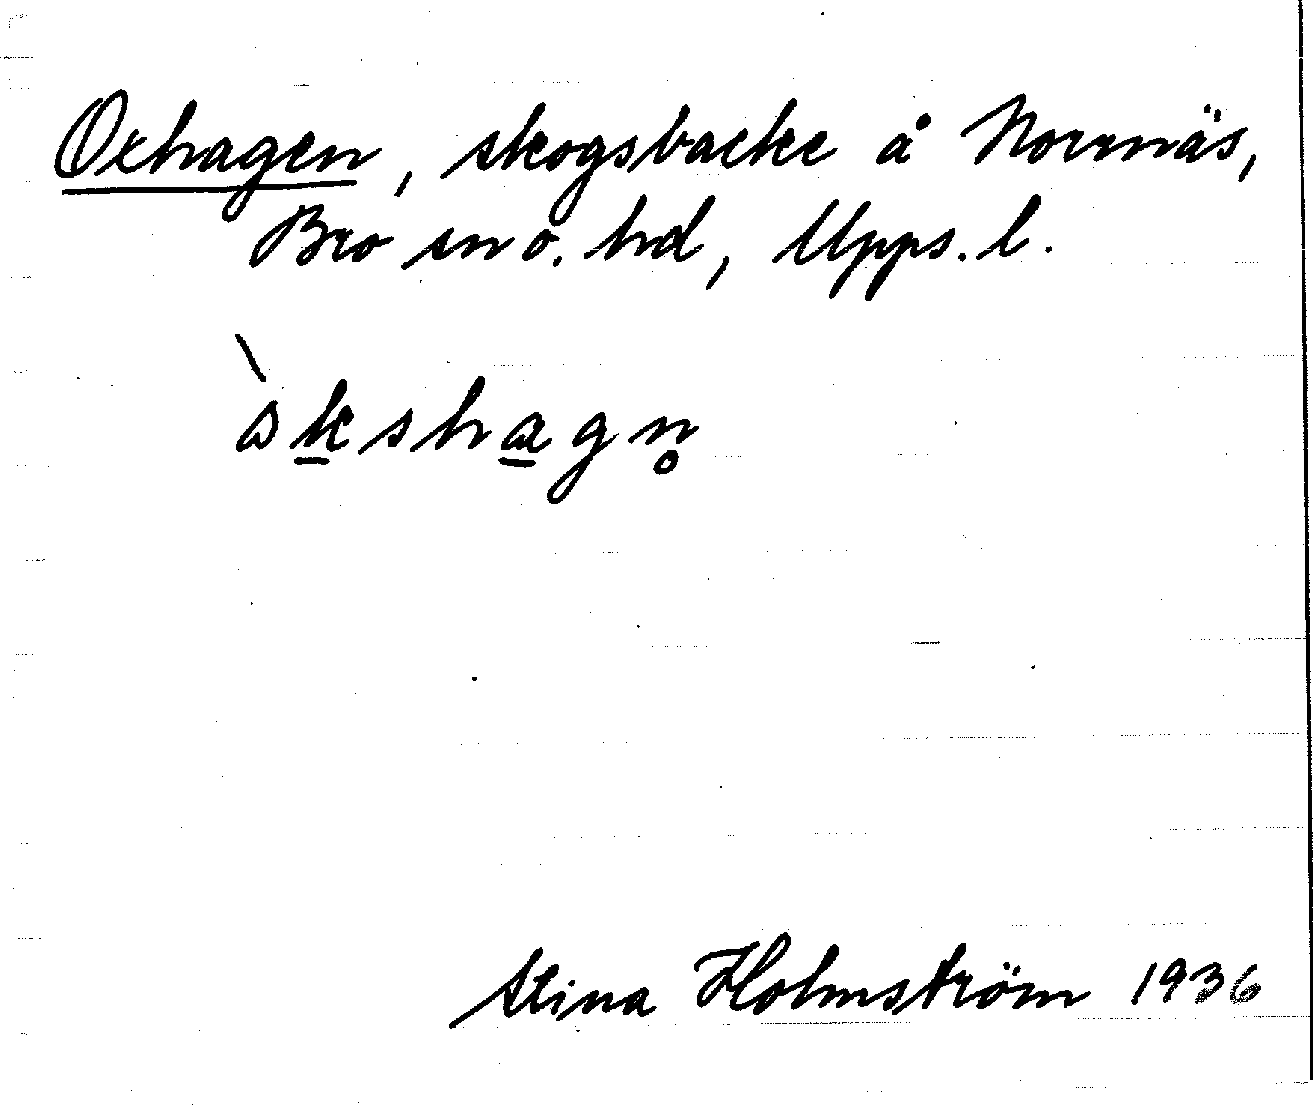 Oxhagen, skogsbacke å Norrnäs,
Bro sn o. hd, Upps. l.
`
ɷkshagn̥
Stina Holmström 1936